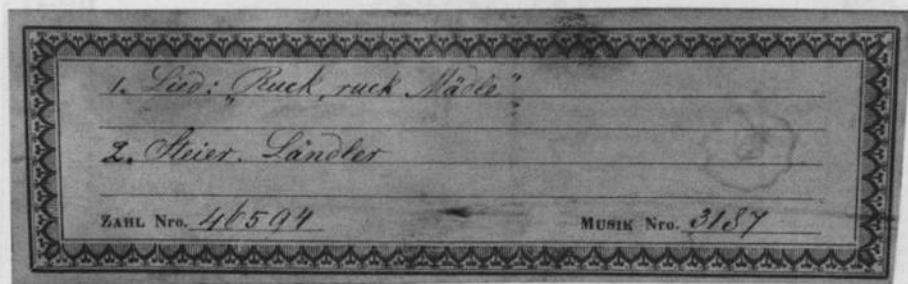 1. Lied: „Ruck, ruck Mädle"
2. Steier. Ländler
ZAHL Nro. 46594 MUSIK Nro. 3187